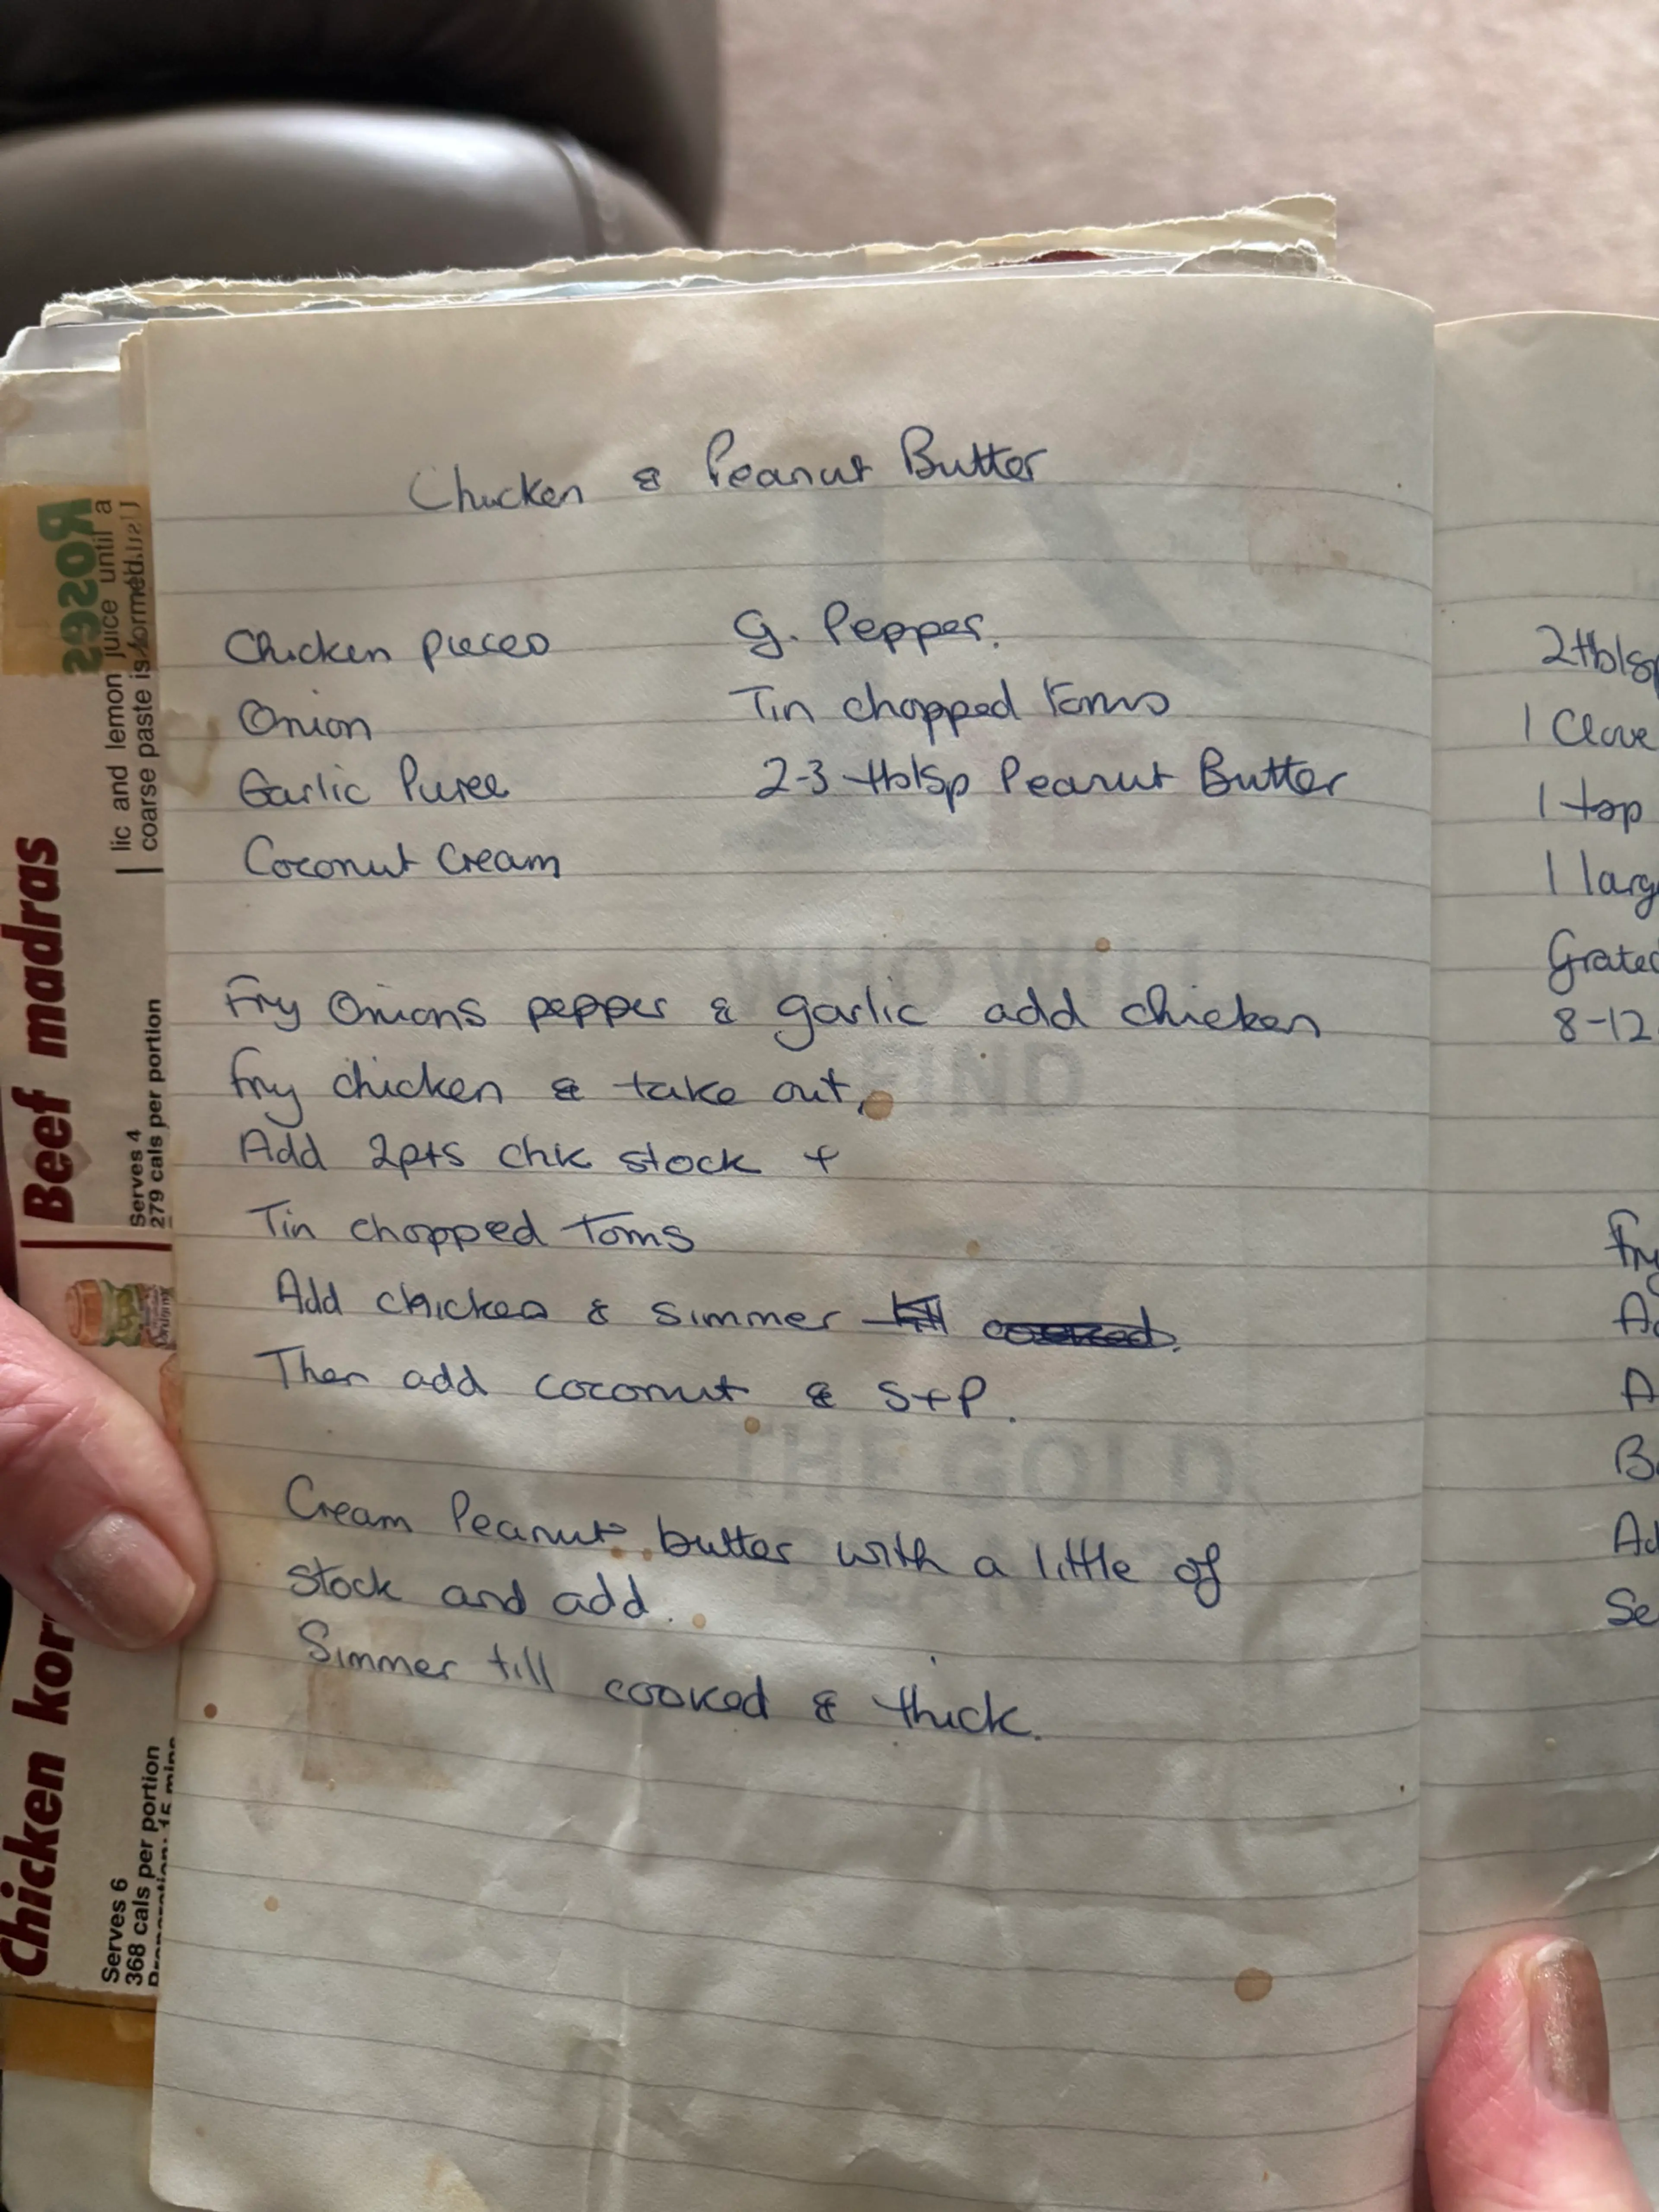 Chicken & Peanut Butter
Chicken pieces
Onion
Garlic Puree
Coconut Cream
G. Pepper.
Tin chopped toms
2-3 tblsp Peanut Butter
Fry Onions pepper & garlic add chicken
fry chicken & take out,
Add 2pts chk stock +
Tin chopped Toms
Add chicken & simmer till cooked.
Then add coconut & S+P.
Cream Peanut butter with a little of
stock and add.
Simmer till cooked & thick.
2tblsp
1 Clove
1 tsp
1 larg
Grated
8-12
Fry
Ad
A
B
Ad
Se
Roses
lic and lemon juice until a
coarse paste is formed.
Beef madras
Serves 4
279 cals per portion
Chicken kor
Serves 6
368 cals per portion
Preparation: 15 mins
WHO WILL
FIND
THE GOLD
BEANS